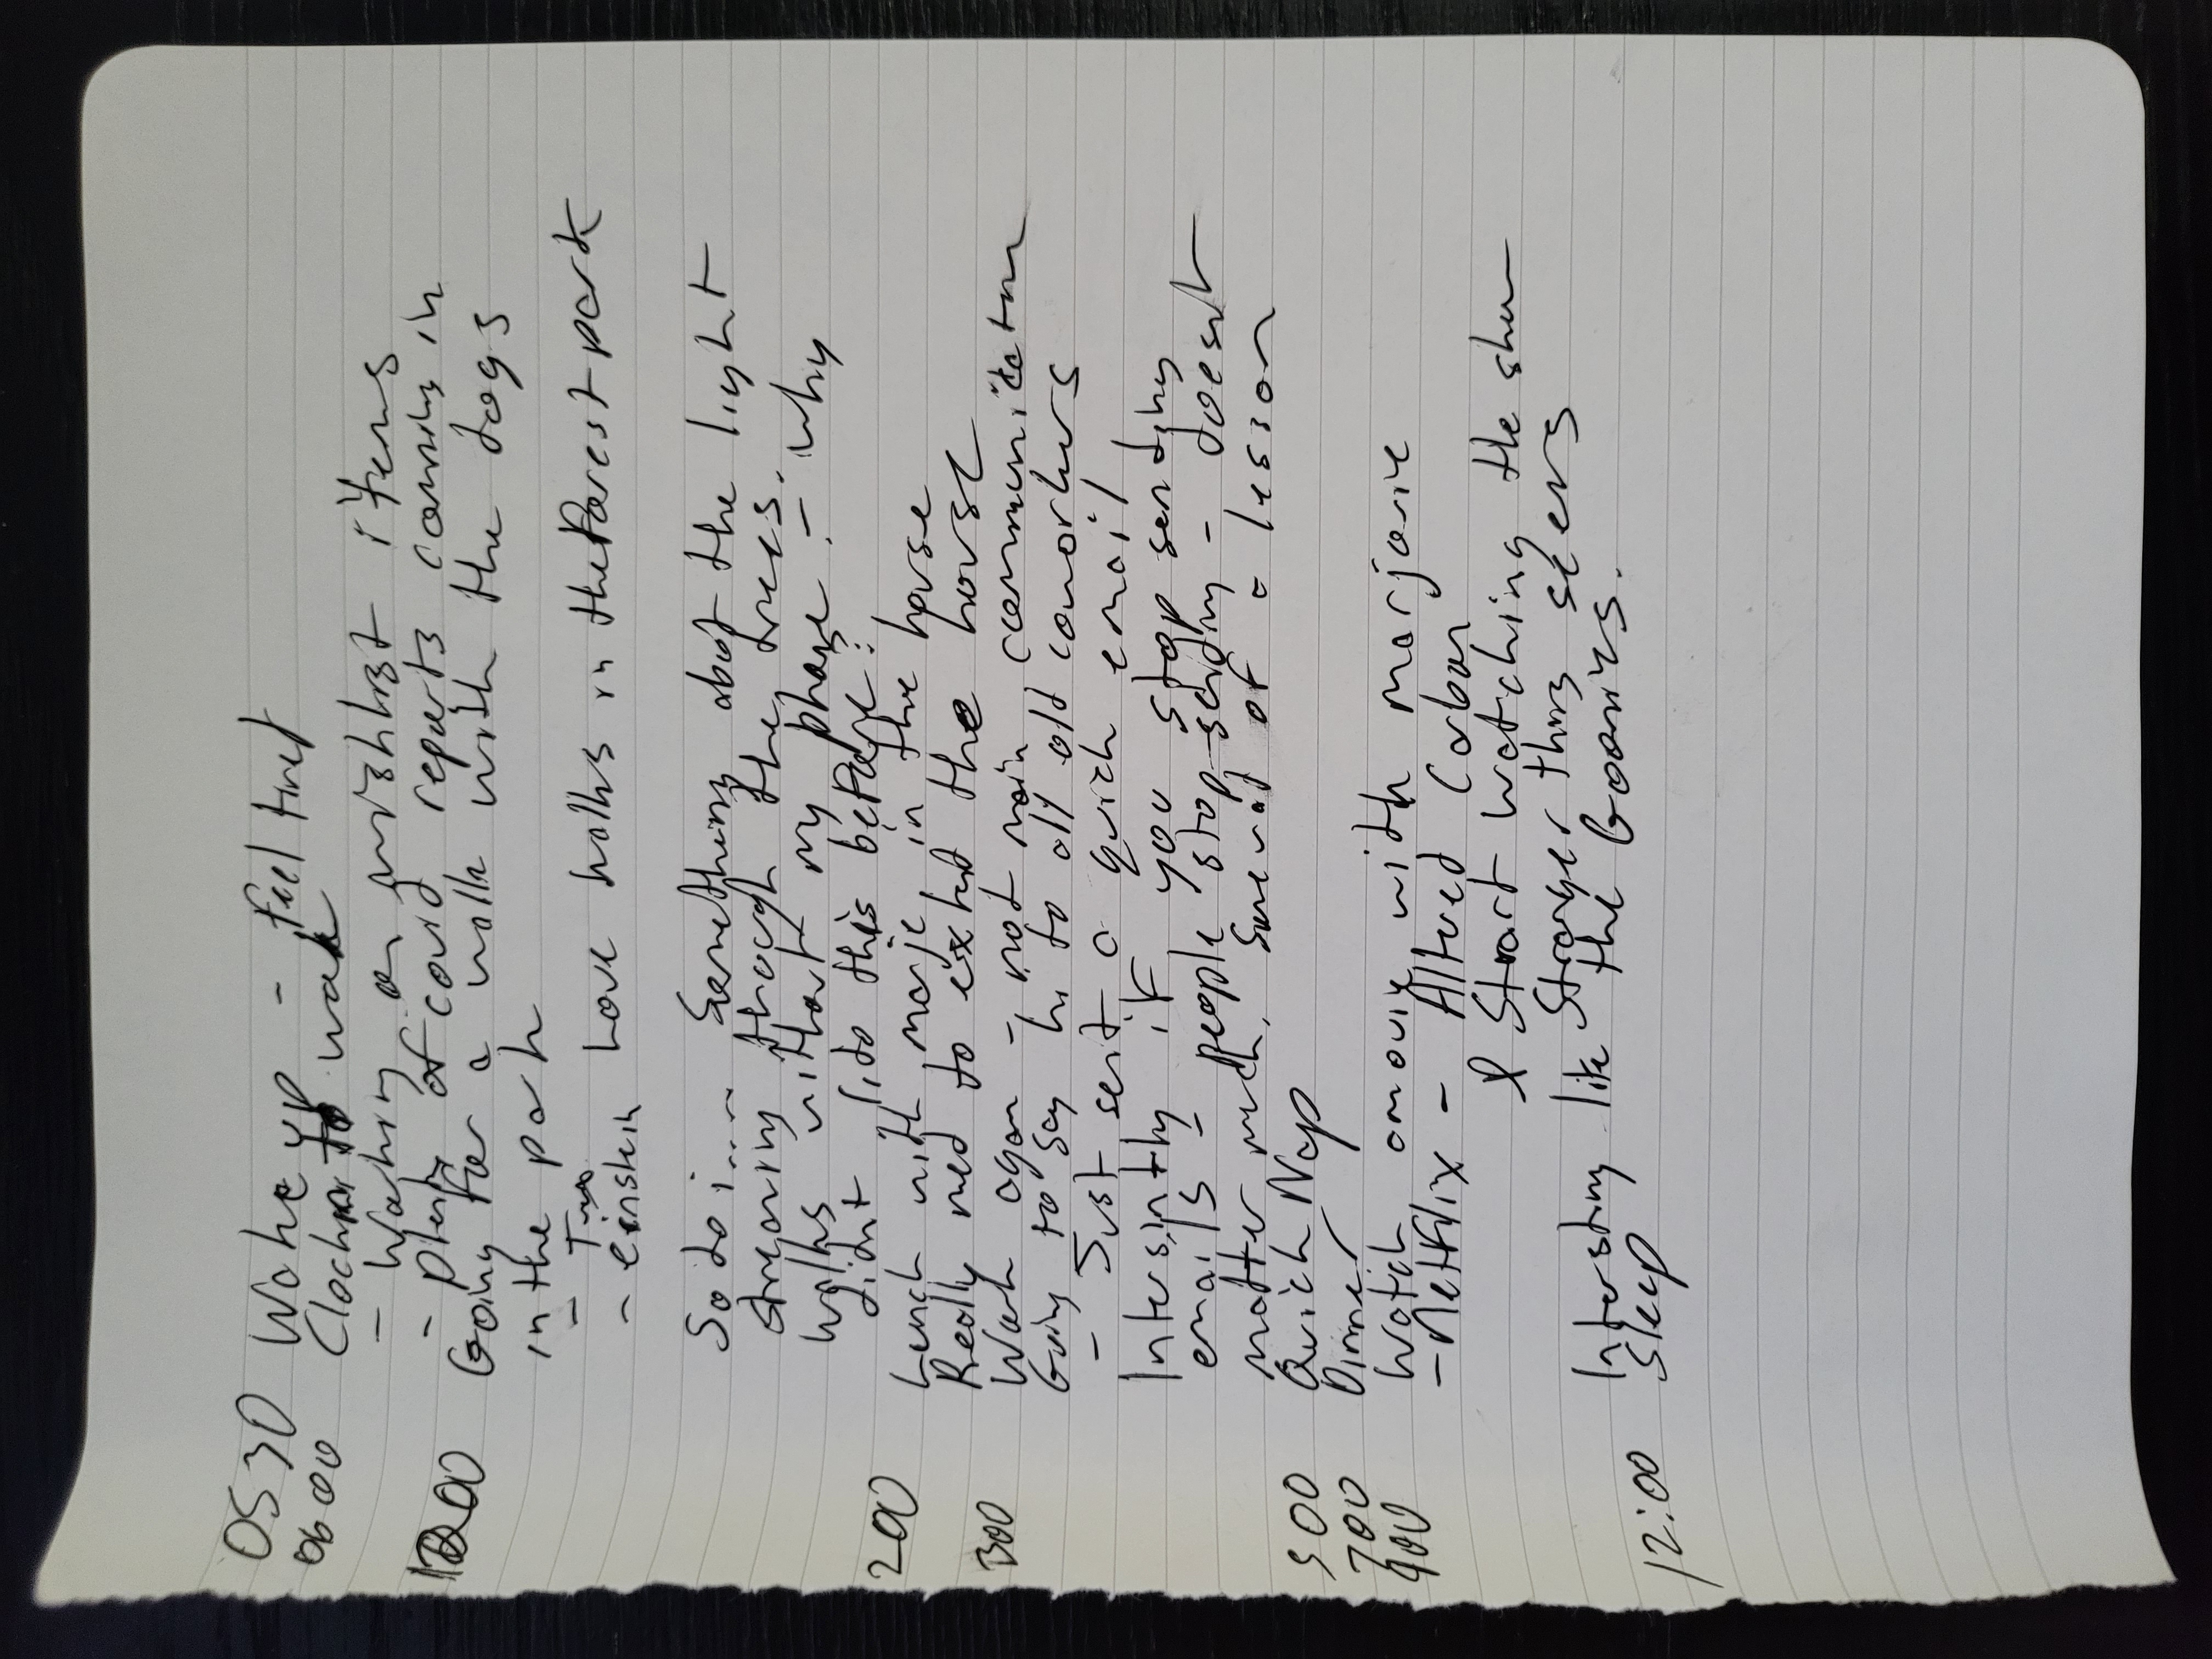 0530 Wake up - feel tired
0600 Clockin to work
- Working on wishlist items
- plenty of covid reports coming in
1200 Going for a walk with the dogs
in the park
-
- einstein Love walks in the Forest park
So do i.... Something about the light
streaming through the trees.
walks without my phone - why
didnt I do this before?
200 Lunch with marje, in the house
Really need to extend the house
300 Work again - not main communication
Going to say hi to all old coworkers
- Just sent a quick email
Intersintly if you stop sending
emails - people stop sending - doesnt
matter much. Somewhat of a lesson
500 Quick Nap
700 Dinner
900 Watch a movie with marjorie
- Netflix - Altered Carbon
& Start watching the show
Stranger things seems
Intersting like the Goonies.
12:00 Sleep